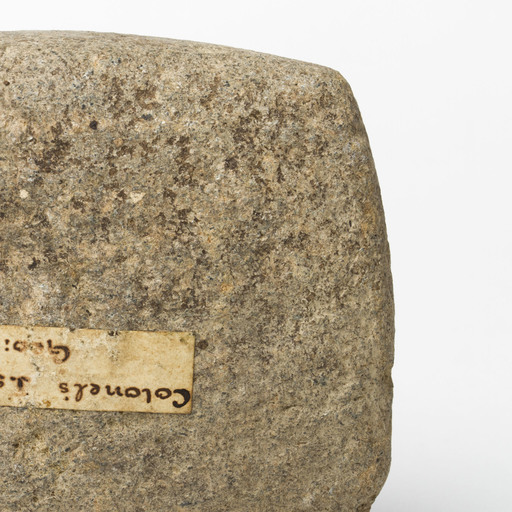 Colonel's
Geo: